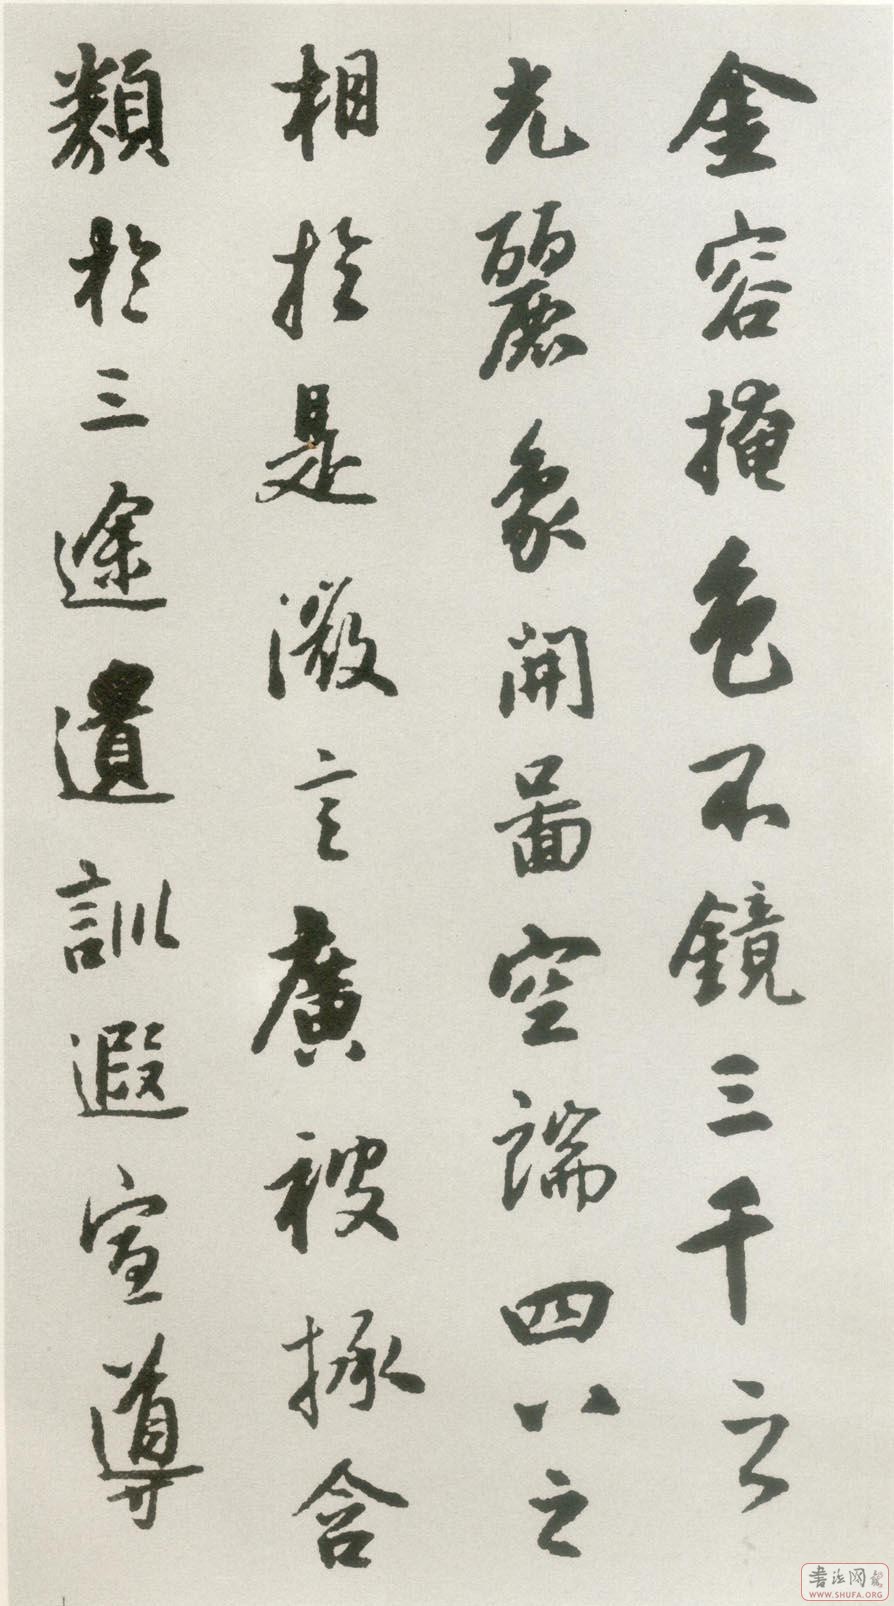 金容掩色不鏡三千之
光麗象開圖空端四八之
相於是微言廣被拯含
類於三途遺訓遐宣導
書法网
WWW.SHUFA.ORG